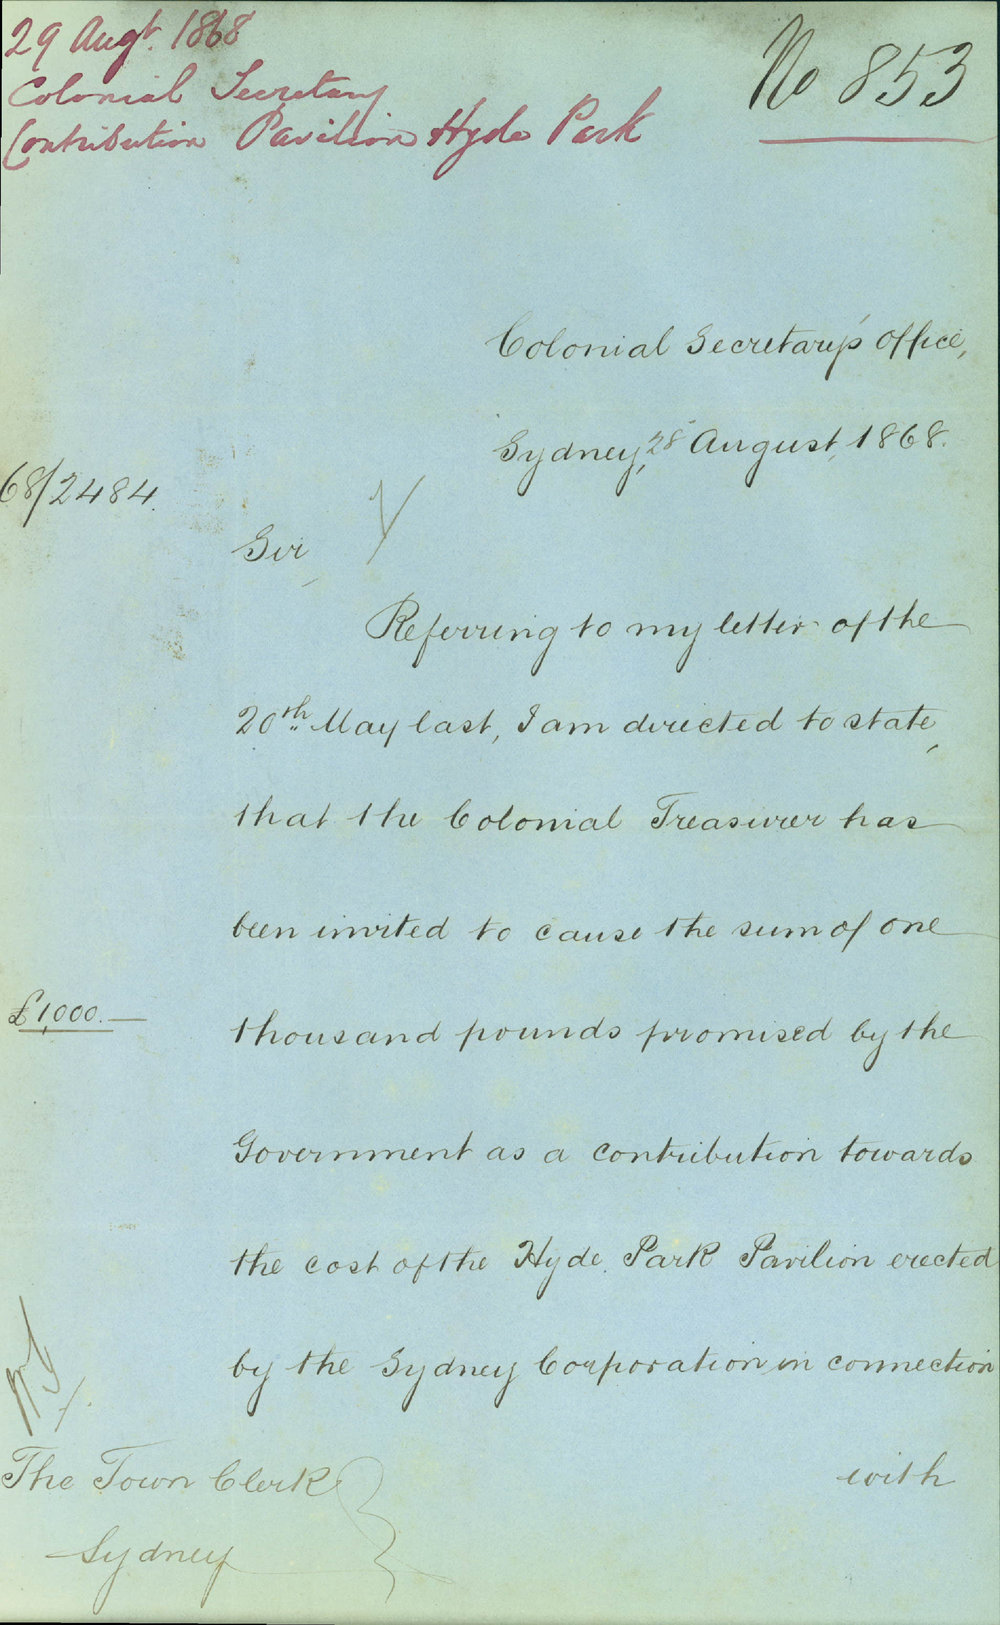 29 Augt. 1868
Colonial Secretary
Contribution Pavilion Hyde Park
No 853
Colonial Secretary's Office,
Sydney, 28 August, 1868.
68/2484.
Sir,
Referring to my letter of the
20th May last, I am directed to state,
that the Colonial Treasurer has
been invited to cause the sum of one
£1,000.—
thousand pounds promised by the
Government as a contribution towards
the cost of the Hyde Park Pavilion erected
by the Sydney Corporation in connection
with
The Town Clerk
Sydney